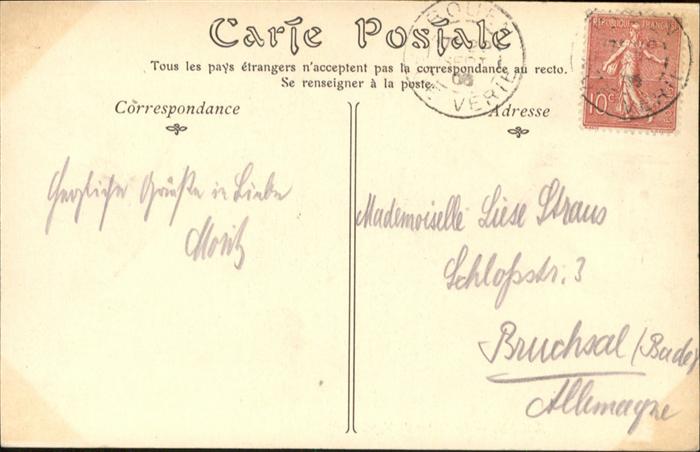 Carte Postale
Tous les pays étrangers n'acceptent pas la correspondance au recto.
Se renseigner à la poste.
Correspondance
Adresse
ROUEN
SEPT
06
VERTE
REPUBLIQUE FRANÇAISE
10c
POSTES
Herzliche Grüße in Liebe
Moritz
Mademoiselle Liese Straus
Schloßstr. 3
Bruchsal (Baden
Allemagne